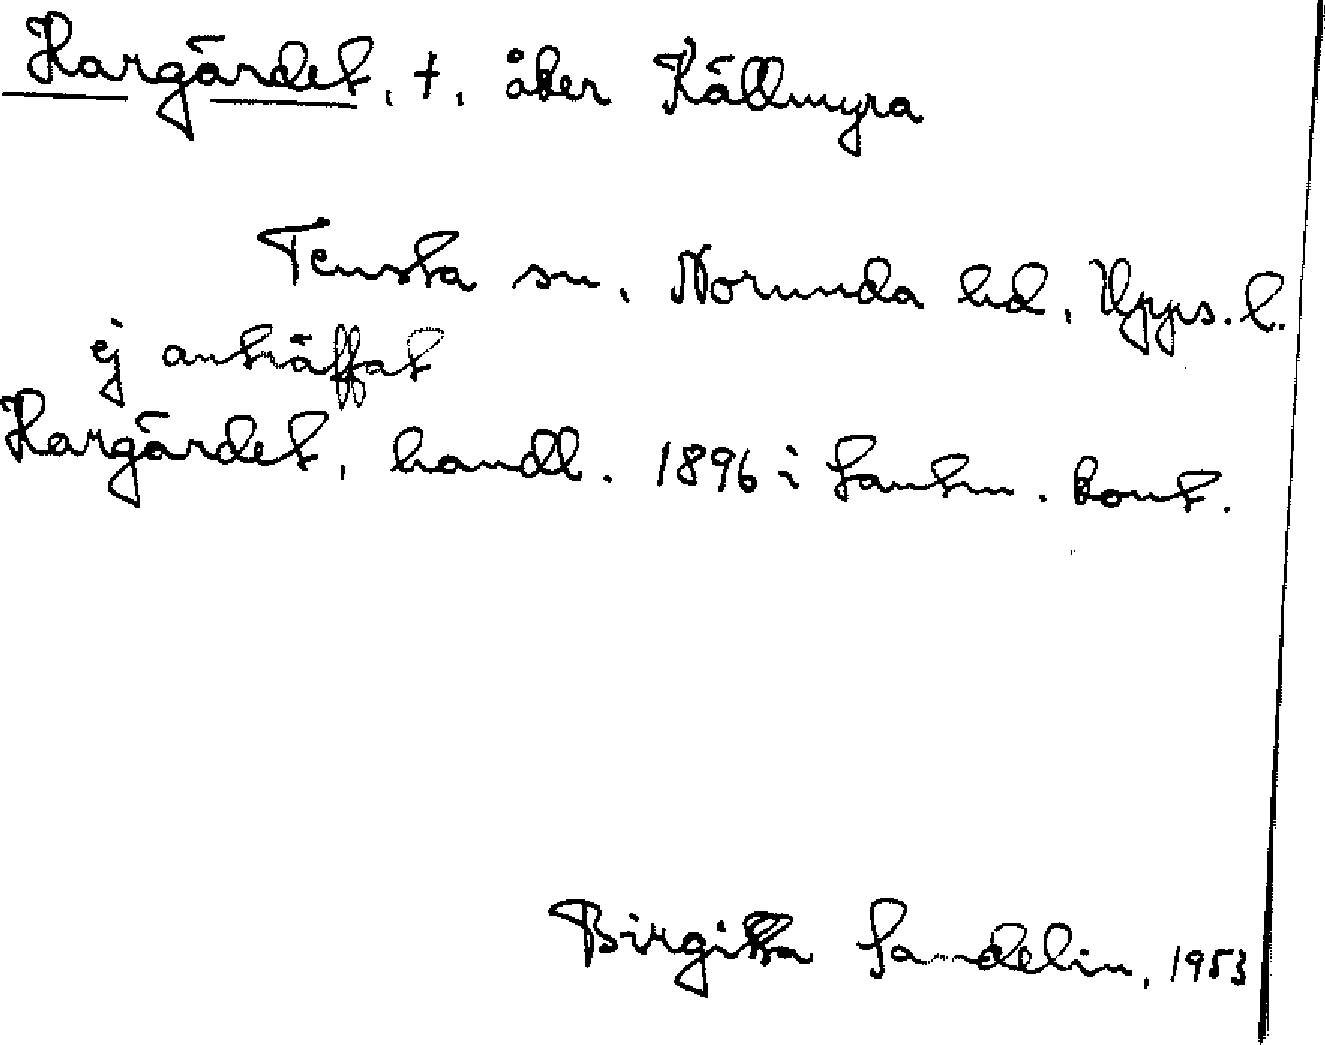 Hargärdet, †, åker Källmyra
Tensta sn, Norunda hd, Upps. l.
ej anträffat
Hargärdet, handl. 1896 i Lantm. kont.
Birgitta Sandelin, 1953